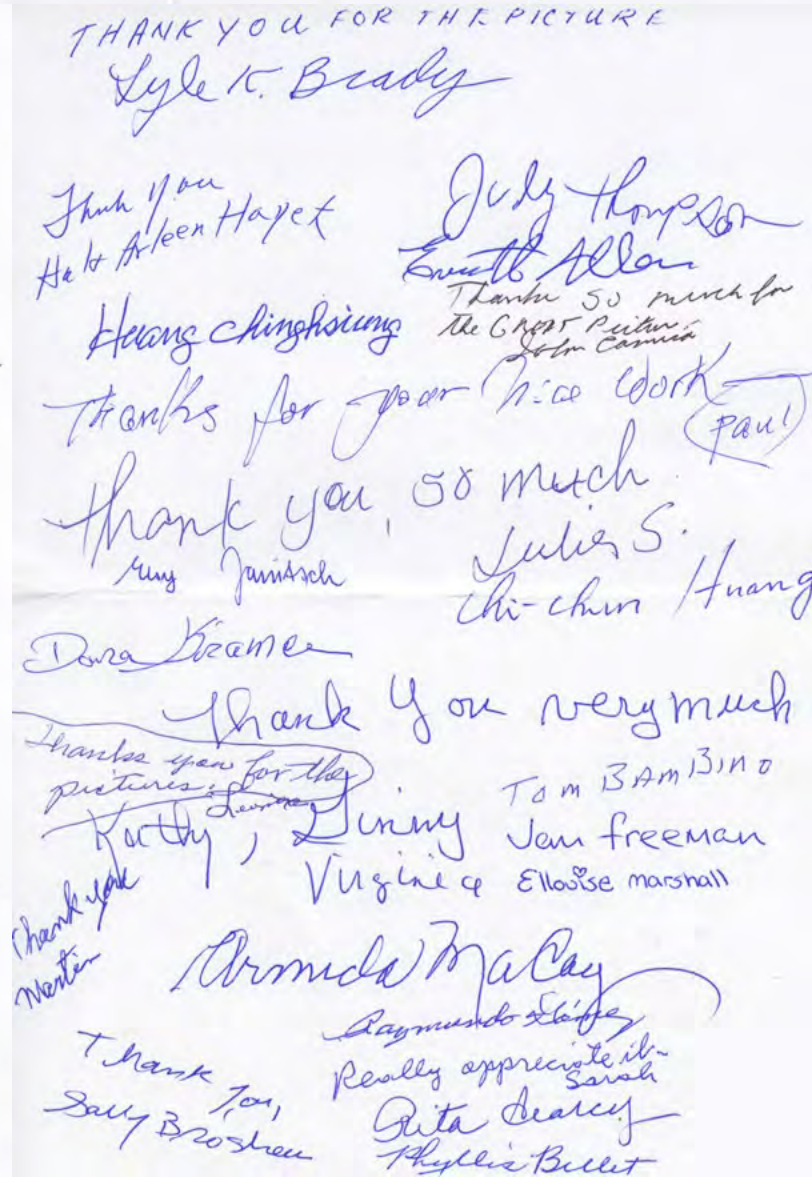 THANK YOU FOR THE PICTURE
Lyle K. Brady
Thank you
Arleen
Judy Thompson
Everett Allen
Huang Chinghsiung
Thanks so much for
the GREAT Picture.
John
Thanks for your nice work
Paul
thank you, so much.
S.
Chi-chun Huang
Kramer
Thank You very much
Thanks you for the
pictures.
Kathy, Ginny
TOM BAMBINO
Jan freeman
Virginia
Ellouise marshall
Thank you
Martin
Armida
Raymundo
Really appreciate it-
Sarah
Thank You,
Sally
Rita Searcy
Phyllis